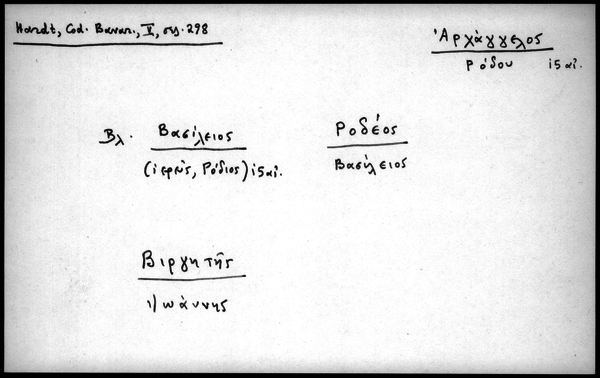 Hardt, Cod. Bavar., V, σς. 298
Ἀρχάγγελος
Ρόδου ις αἰ.
Βλ. Βασίλειος
(ἱερεὺς, Ρόδιος) ις αἰ.
Ροδέος
Βασίλειος
Βιργητῆς
Ἰωάννης